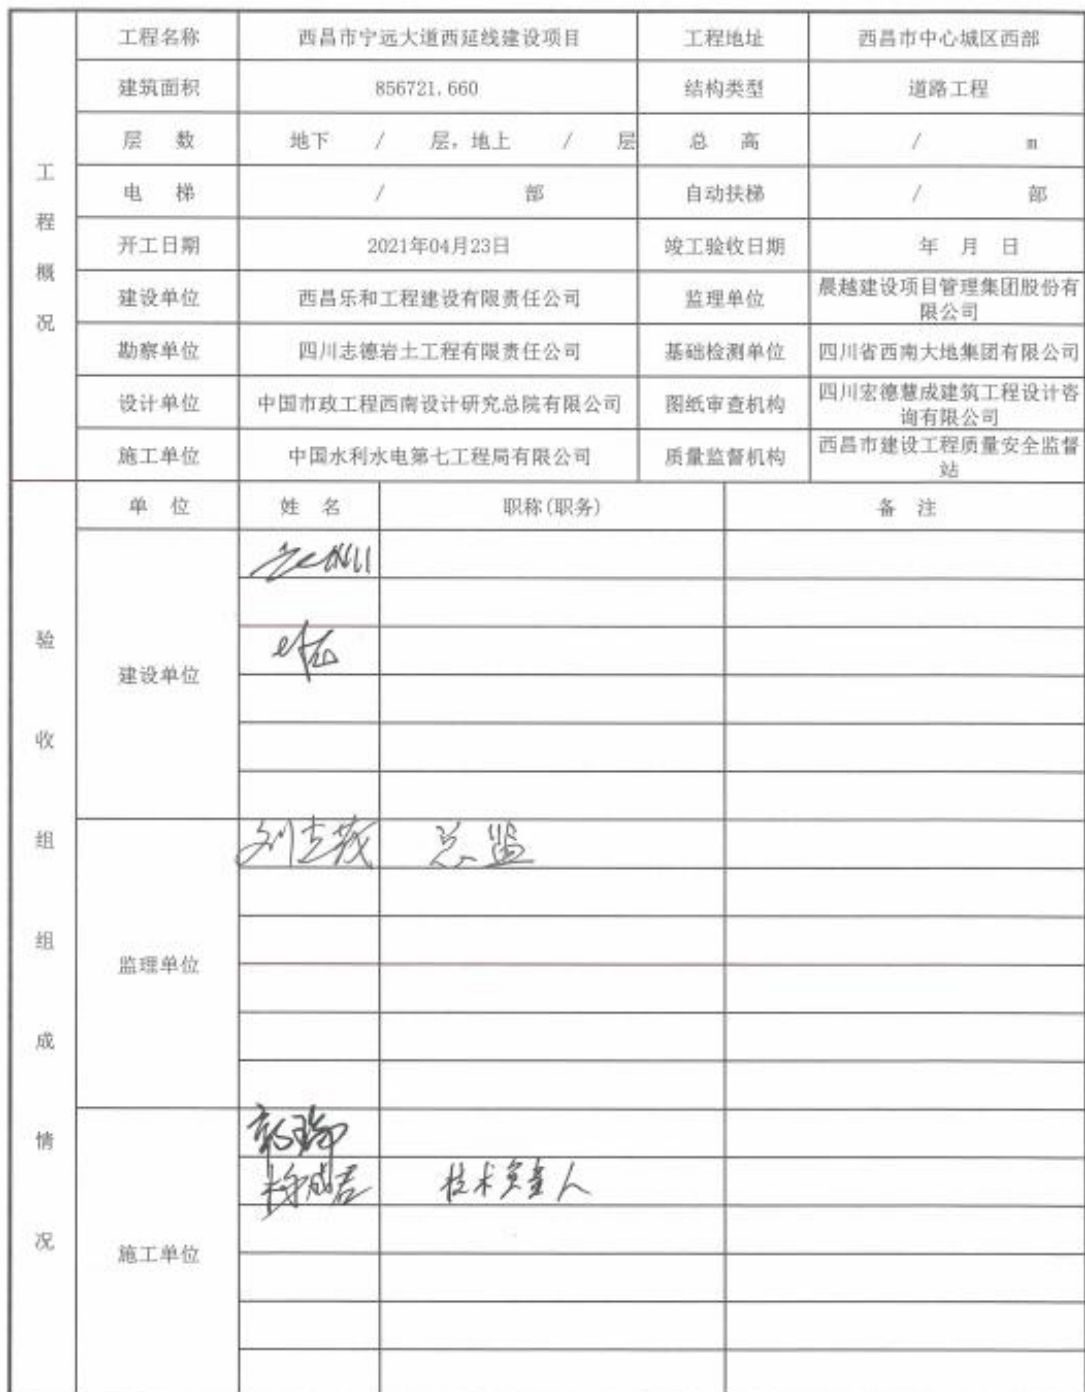 工程概况
工程名称 西昌市宁远大道西延线建设项目 工程地址 西昌市中心城区西部
建筑面积 856721.660 结构类型 道路工程
层 数 地下 / 层，地上 / 层 总 高 / m
电 梯 / 部 自动扶梯 / 部
开工日期 2021年04月23日 竣工验收日期 年 月 日
建设单位 西昌乐和工程建设有限责任公司 监理单位 晨越建设项目管理集团股份有
限公司
勘察单位 四川志德岩土工程有限责任公司 基础检测单位 四川省西南大地集团有限公司
设计单位 中国市政工程西南设计研究总院有限公司 图纸审查机构 四川宏德慧成建筑工程设计咨
询有限公司
施工单位 中国水利水电第七工程局有限公司 质量监督机构 西昌市建设工程质量安全监督
站
验收组组成情况
单 位 姓 名 职称(职务) 备 注
建设单位
监理单位 总监
施工单位
技术负责人